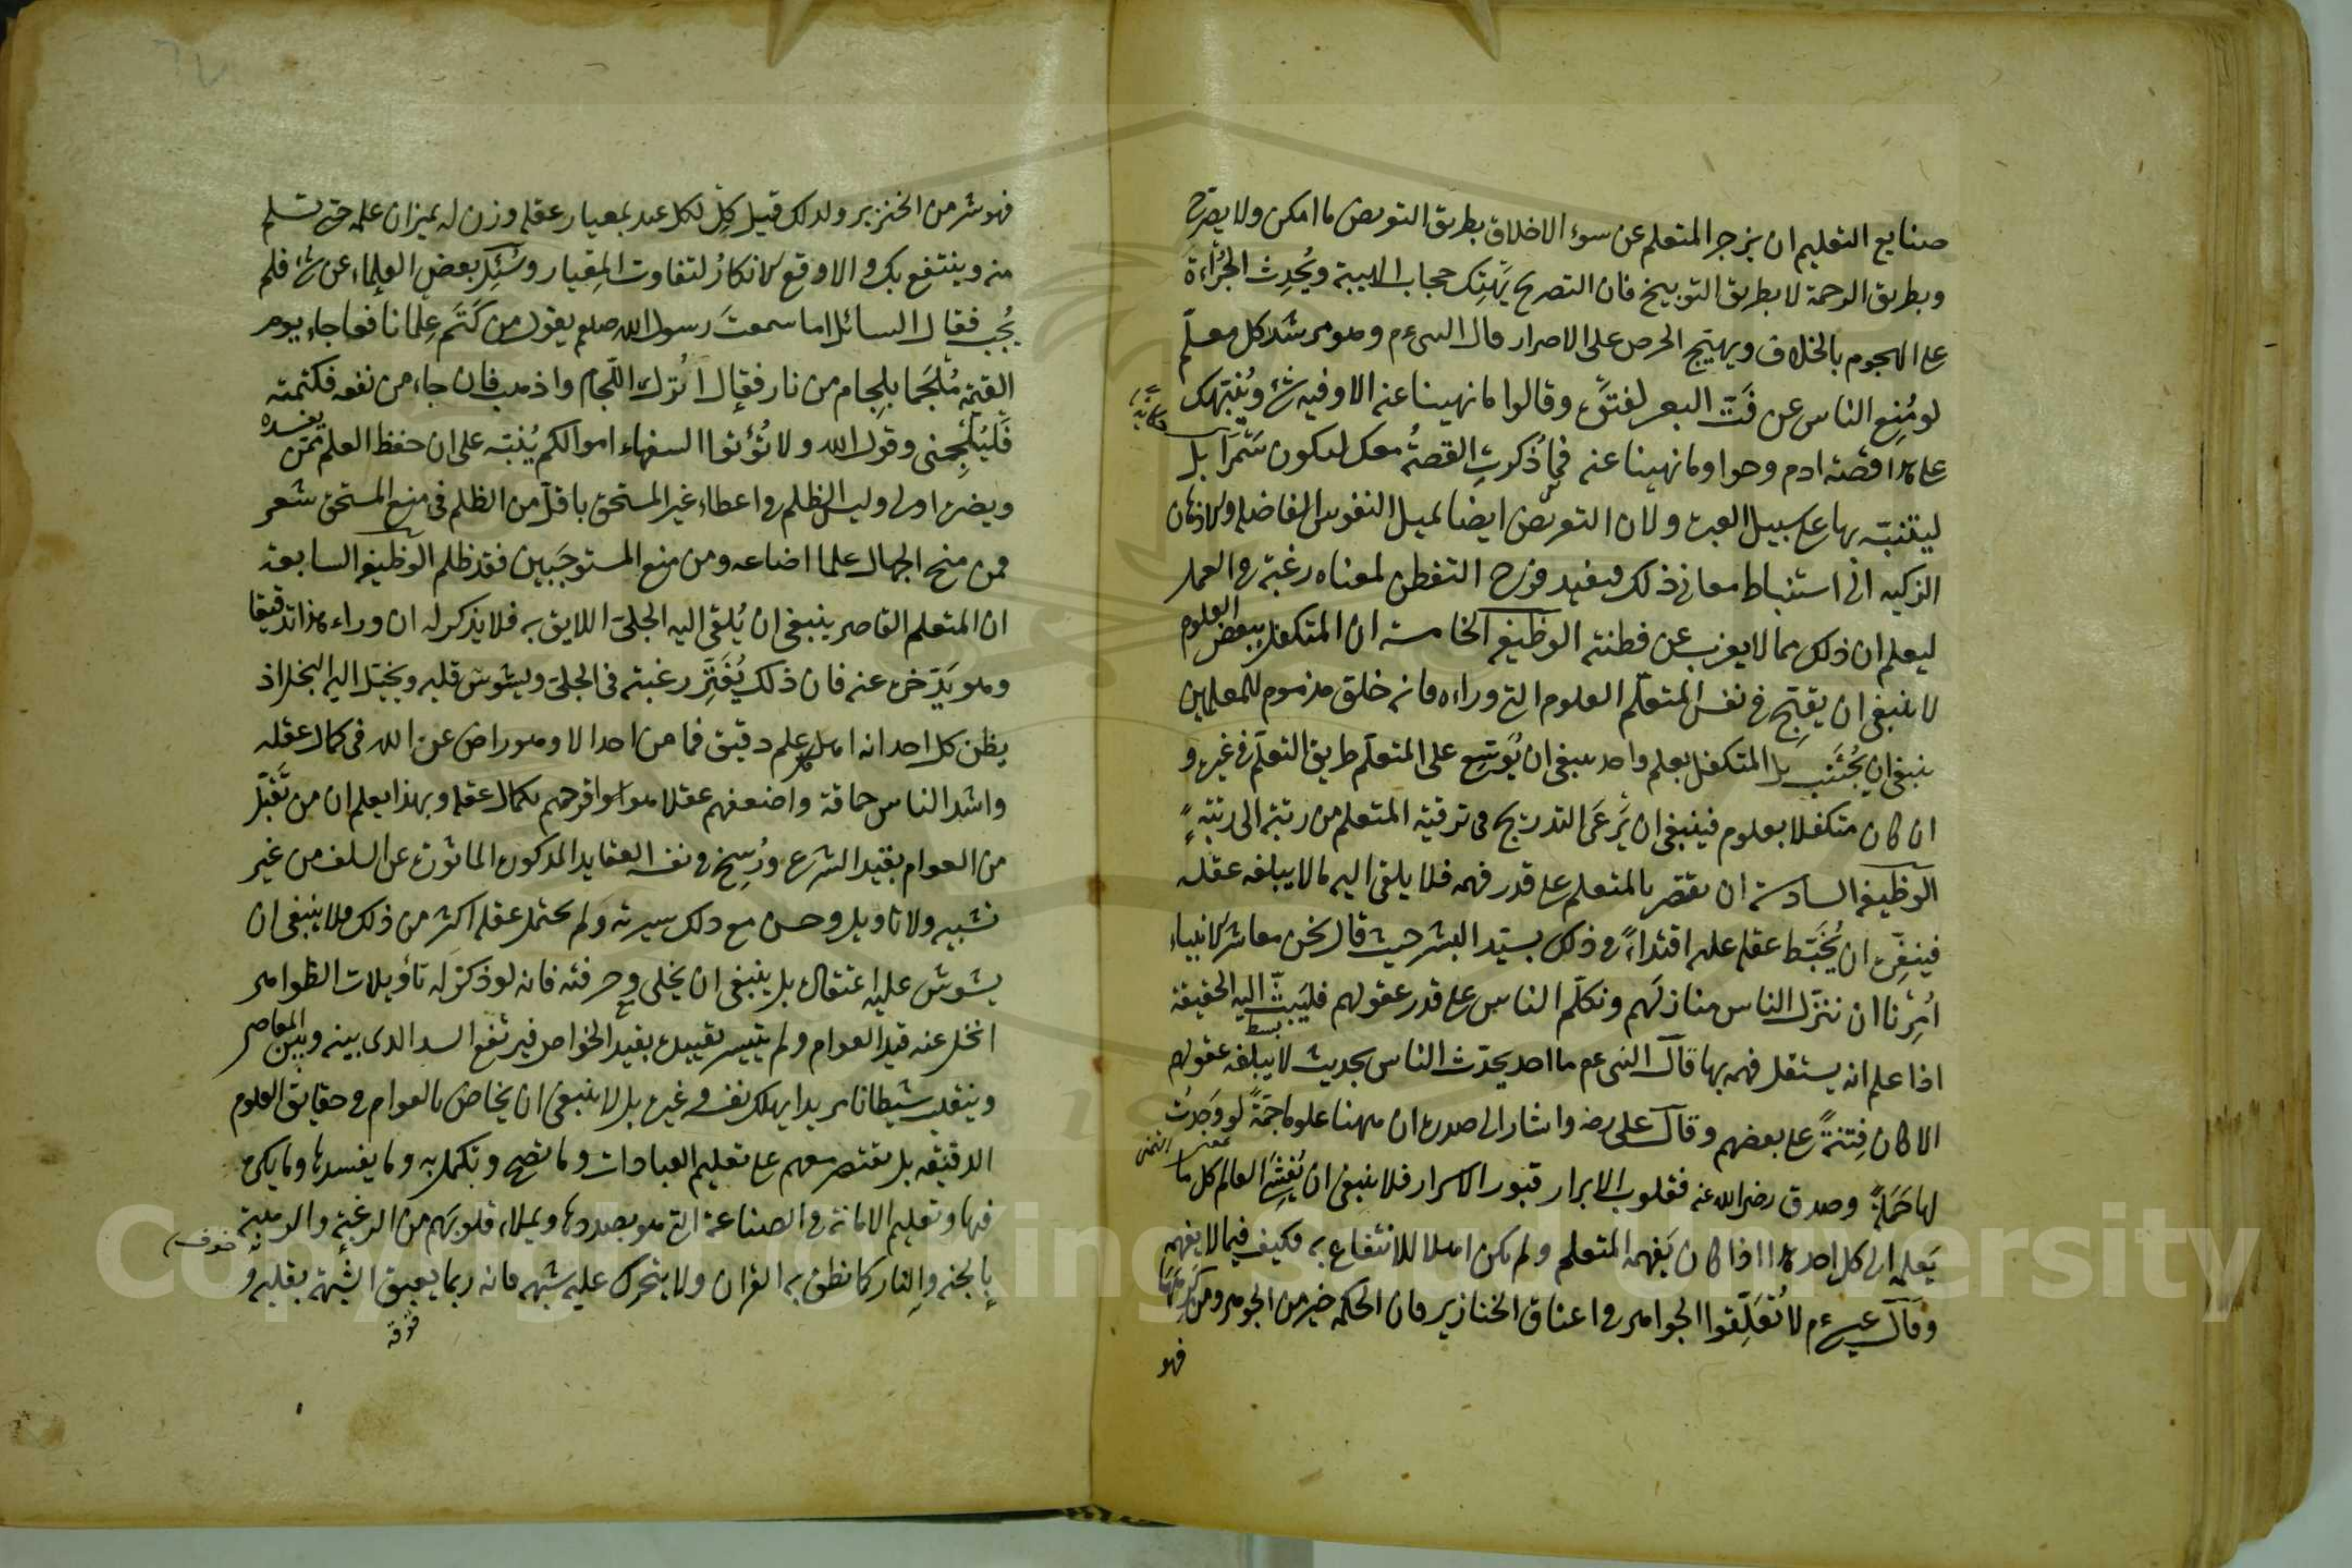 صنايع التعليم ان يزجر المتعلم عن سوء الاخلاق بطريق التعريض ما امكن ولا يصرح
وبطريق الرحمة لا بطريق التوبيخ فان التصريح يَهْتِك حجاب الهيبة ويُحدِث الجُرْأة
على الهجوم بالخلاف ويهيّج الحرص على الاصرار قال النبى ءم وهو مرشد كل معلّم
لو مُنِع الناس عن فَتّ البعر لفتوّه وقالوا ما نهينا عنه الا وفيه شئ ويُنبّهك
على هذا قصة ادم وحوا وما نهينا عنه فما ذُكرتِ القصةُ معك لتكون سَمَرًا بل
ليتنبّه بها على سبيل العبرة ولان التعريض ايضا يميل النفوس الفاضلة والاذهان
الزكيه الى استنباط معانى ذلك فيفيد فرح التفطن لمعناه رغبة فى العمل
ليعلم ان ذلك مما لا يعزب عن فطنته الوظيفه الخامسة ان المتكفل ببعض العلوم
لا ينبغى ان يقبّح فى نفس المتعلّم العلوم التى وراءه فانه خلق مذموم للمعلمين
ينبغى ان يُجْتَنب بل المتكفل بعلم واحد ينبغى ان يُوسّع على المتعلّم طريق التعلّم فى غيره و
ان كان متكفلا بعلوم فينبغى ان يَرعَى التدريج فى ترقية المتعلم من رتبة الى رتبةٍ
الوظيفة السادسة ان يقتصر بالمتعلم على قدر فهمه فلا يلقى اليه ما لا يبلغه عقله
فينفّره ان يُخَبّط عقله عليه اقتداءً فى ذلك بسيّد البشر حيث قال نحن معاشر الانبياء
اُمِرْنا ان ننزّل الناس منازلهم ونكلّم الناس على قدر عقولهم فليَبثّ اليه الحقيقة
بسط
اذا علم انه يستقل فهمه بها قال النبى عم ما احد يحدّث الناس بحديث لا يبلغه عقولهم
الا كان فِتنةً على بعضهم وقال على رضه واشار الى صدره ان ههنا علوما جَمّةً لو وَجدتُ
لها حَمَلةً وصدق رضى الله عنه فقلوب الابرار قبور الاسرار فلا ينبغى ان يُفْشِىَ العالم كل ما
يَعلم الى كل احد هذا اذا كان يَفهمه المتعلم ولم يكن اهلا للانتفاع به فكيف فيما لا يفهمه
وقال عيسى ءم لا تُعَلِّقوا الجواهر فى اعناق الخنازير فان الحكمه خير من الجوهر ومن كَرِهَها
فهو
فهو شر من الخنزير ولذلك قيل كِلْ لكل عبد بمعيار عقله وزن له بميزان علمه حتى تسلم
منه وينتفع بك والا وقع الانكارُ لتفاوت المِعيار وسُئِل بعض العلماء عن شئ فلم
يُجِب فقال السائل اما سمعتَ رسول الله صلعم يقول من كَتَم عِلما نافعا جاء يوم
القيمة مُلْجَما بلجام من نار فقال اُترك اللّجام واذهب فان جاء من نفعه فكتمته
فَليُلْجِمنى وقول الله ولا تُؤتوا السفهاء اموالكم يُنبّه على ان حفظ العلم ممّن يفسده
ويضره اولى وليس الظلم فى اعطاء غير المستحق باقلّ من الظلم فى منع المستحق شعر
فمن منح الجهال علما اضاعه ومن منع المستوجَبين فقد ظلم الوظيفة السابعة
ان المتعلم القاصر ينبغى ان يُلقى اليه الجلىّ اللايق به فلا يذكر له ان وراء هذا تدقيقا
وهو يَدّخره عنه فان ذلك يُفَتِّر رغبته فى الجلىّ ويشوش قلبه ويخيّل اليه البخل اذ
يظن كل احد انه اهل كل علم دقيق فما من احد الا وهو راض عن الله فى كمال عقله
واشد الناس حماقة واضعفهم عقلا هو افرحهم بكمال عقله وبهذا يعلم ان من تَقَيّد
من العوام بقيد الشرع ورُسِخ فى نفسه العقايد المذكوره الماثوره عن السلف من غير
تشبيه ولا تاويل وحسن مع ذلك سيرته ولم يحتمل عقله اكثر من ذلك فلا ينبغى ان
يشوش عليه اعتقاده بل ينبغى ان يخلى وحرفته فانه لو ذكر له تأويلات الظواهر
انخل عنه قيد العوام ولم يتيسر تقييده بقيد الخواص فيرتفع السد الذى بينه وبين المعاصى
وينقلب شيطانا مريدا يهلك نفسه وغيره بل لا ينبغى ان يخاض بالعوام فى حقايق العلوم
الدقيقه بل يقتصر معهم على تعليم العبادات وما تصح وتكمل به وما يفسدها وما يكره
فيها وتعليم الامانة فى الصناعة التى هو بصددها ويملاء قلوبَهم من الرغبةِ والرهبةِ
خوف
بالجنه والنار كما نطق به القران ولا يتحرك عليه شبهه فانه ربما يعبق الشبهة بقلبه و